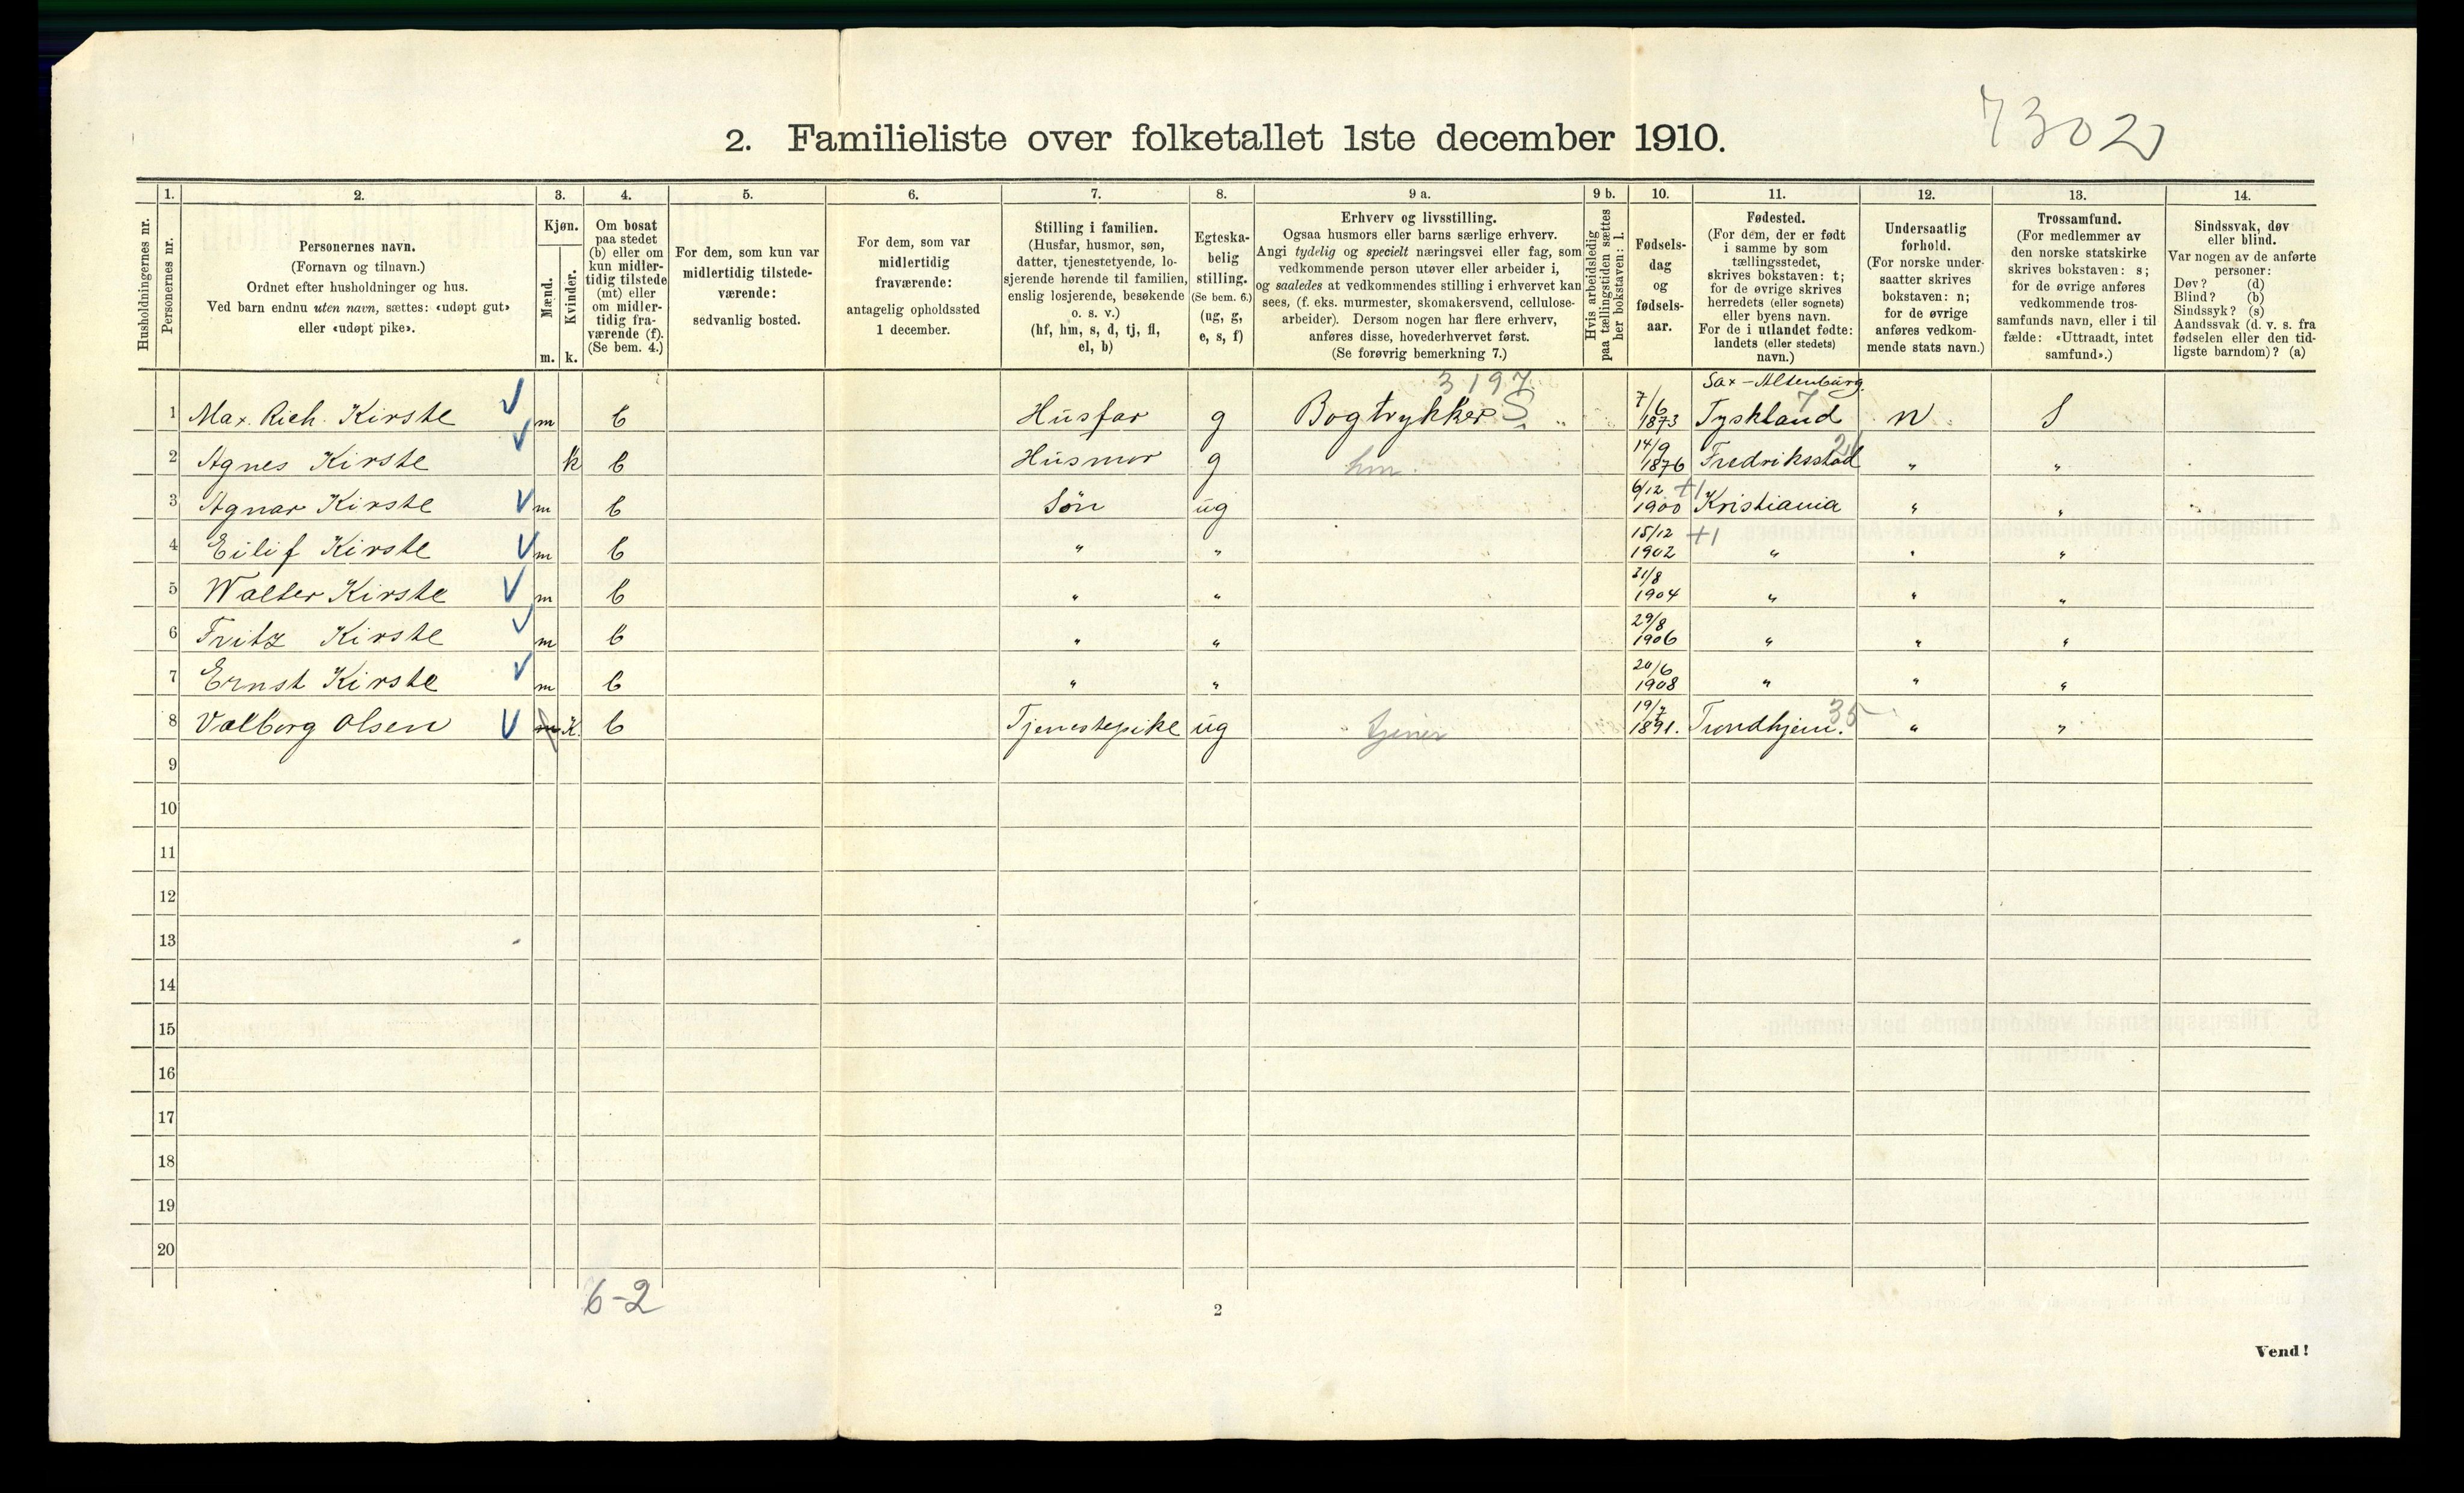 7302
2. Familieliste over folketallet 1ste december 1910.
Husholdningernes nr.
1. Personernes nr.
2. Personernes navn.
(Fornavn og tilnavn.)
Ordnet efter husholdninger og hus.
Ved barn endnu uten navn, sættes: «udøpt gut»
eller «udøpt pike».
3. Kjøn.
Mænd. m.
Kvinder. k.
4. Om bosat
paa stedet
(b) eller om
kun midler-
tidig tilstede
(mt) eller
om midler-
tidig fra-
værende (f).
(Se bem. 4.)
5. For dem, som kun var
midlertidig tilstede-
værende:
sedvanlig bosted.
6. For dem, som var
midlertidig
fraværende:
antagelig opholdssted
1 december.
7. Stilling i familien.
(Husfar, husmor, søn,
datter, tjenestetyende, lo-
sjerende hørende til familien,
enslig losjerende, besøkende
o. s. v.)
(hf, hm, s, d, tj, fl,
el, b)
8. Egteska-
belig
stilling.
(Se bem. 6.)
(ug, g,
e, s, f)
9 a. Erhverv og livsstilling.
Ogsaa husmors eller barns særlige erhverv.
Angi tydelig og specielt næringsvei eller fag, som
vedkommende person utøver eller arbeider i,
og saaledes at vedkommendes stilling i erhvervet kan
sees, (f. eks. murmester, skomakersvend, cellulose-
arbeider). Dersom nogen har flere erhverv,
anføres disse, hovederhvervet først.
(Se forøvrig bemerkning 7.)
9 b. Hvis arbeidsledig
paa tællingstiden sættes
her bokstaven: l.
10. Fødsels-
dag
og
fødsels-
aar.
11. Fødested.
(For dem, der er født
i samme by som
tællingsstedet,
skrives bokstaven: t;
for de øvrige skrives
herredets (eller sognets)
eller byens navn.
For de i utlandet fødte:
landets (eller stedets)
navn.)
12. Undersaatlig
forhold.
(For norske under-
saatter skrives
bokstaven: n;
for de øvrige
anføres vedkom-
mende stats navn.)
13. Trossamfund.
(For medlemmer av
den norske statskirke
skrives bokstaven: s;
for de øvrige anføres
vedkommende tros-
samfunds navn, eller i til
fælde: «Uttraadt, intet
samfund».)
14. Sindssvak, døv
eller blind.
Var nogen av de anførte
personer:
Døv? (d)
Blind? (b)
Sindssyk? (s)
Aandssvak (d. v. s. fra
fødselen eller den tid-
ligste barndom)? (a)
3197 Sax-Altenburg
1 Max. Rich. Kirste m b Husfar g Bogtrykker S 7/6 1873 Tyskland 7 n S
2 Agnes Kirste k b Husmor g hm. 14/9 1876 Fredriksstad " "
3 Agnar Kirste m b Søn ug 6/12 1900 +1 Kristiania " "
4 Eilif Kirste m b " " 15/12 1902 +1 " " "
5 Walter Kirste m b " " 31/8 1904 " " "
6 Fritz Kirste m b " " 29/8 1906 " " "
7 Ernst Kirste m b " " 20/6 1908 " " "
8 Valborg Olsen m K. b Tjenestepike ug tjener 19/7 1891. Trondhjem. 35 " "
9
10
11
12
13
14
15
16
17
18
19
20
6-2
2
Vend!